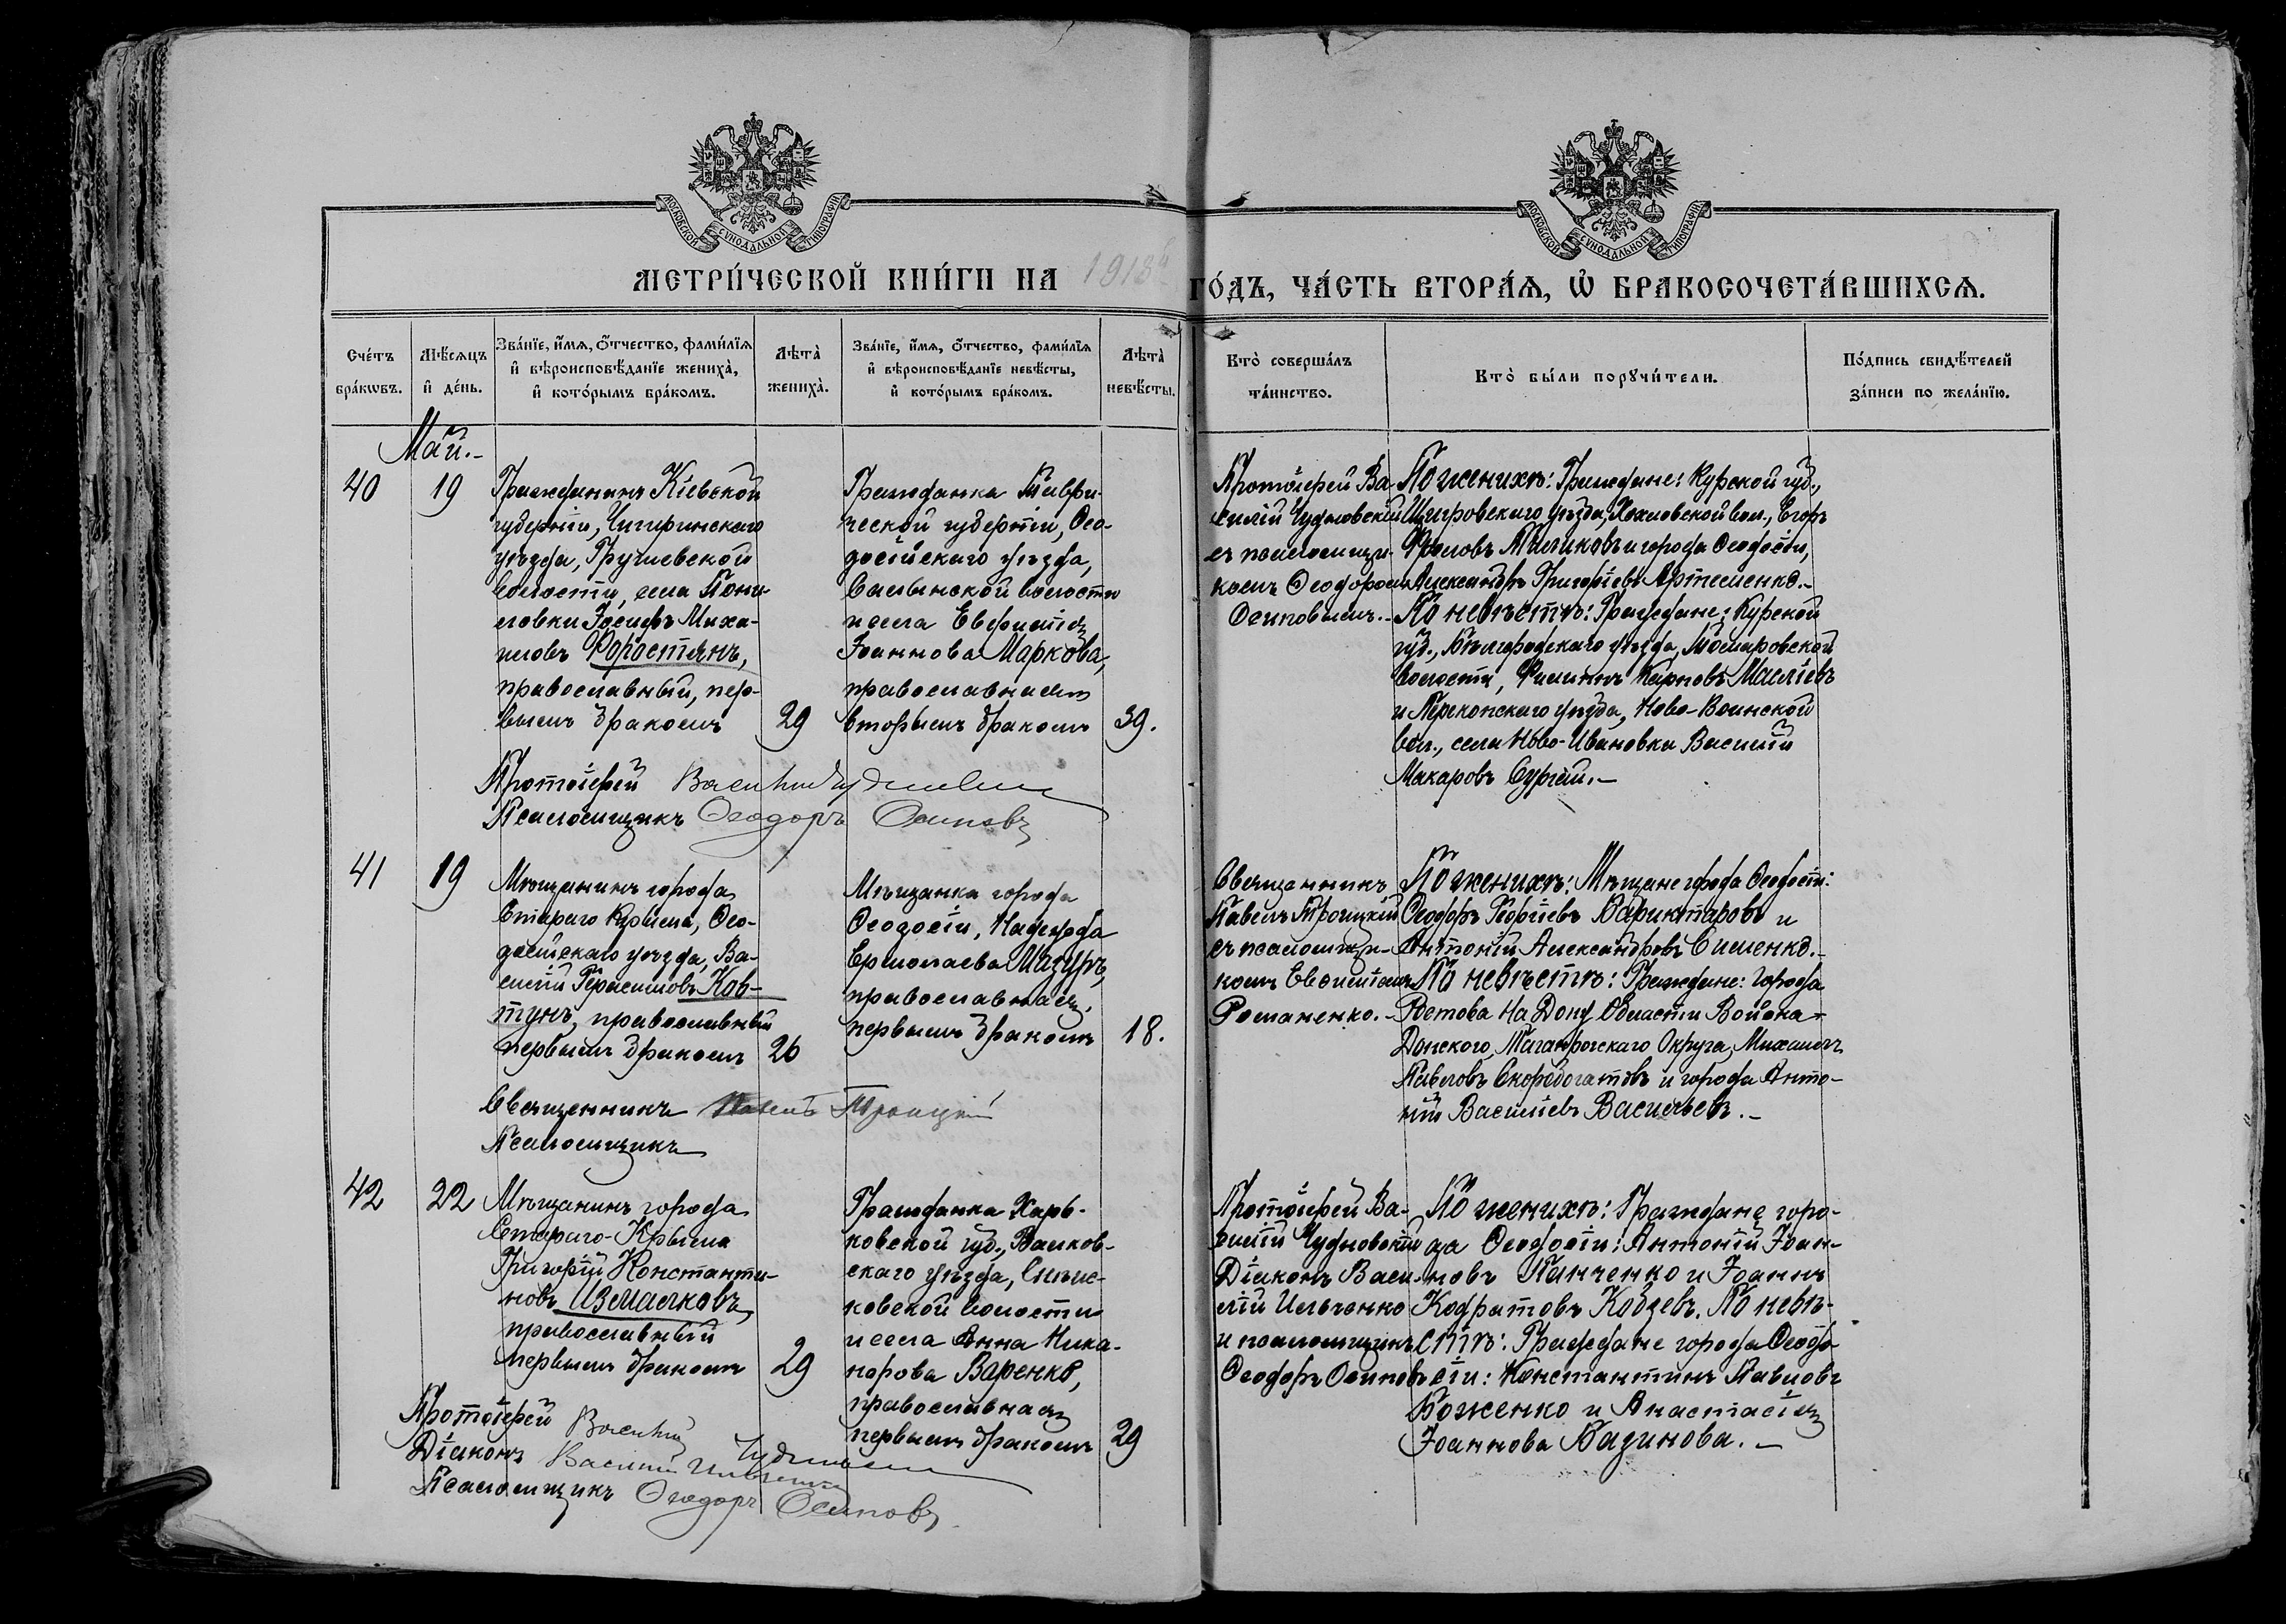 МОСКОВСКОЙ СУНОДАЛЬНОЙ ТИПОГРАФІИ
МОСКОВСКОЙ СУНОДАЛЬНОЙ ТИПОГРАФІИ
МЕТРИ́ЧЕСКОЙ КНИ́ГИ НА 1918 ГО́ДЪ, ЧА́СТЬ ВТОРА́Ѧ, Ѡ БРАКОСОЧЕТА́ВШИХСѦ.
Сче́тъ бра́кѡвъ.
Мѣ́сѧцъ и҆ де́нь.
Зва́нїе, и҆́мѧ, ѻ҆́тчество, фами́лїѧ и҆ вѣроисповѣ́данїе жениха̀, и҆ кото́рымъ бра́комъ.
Лѣта̀ жениха̀.
Зва́нїе, и҆́мѧ, ѻ҆́тчество, фами́лїѧ и҆ вѣроисповѣ́данїе невѣ́сты, и҆ кото́рымъ бра́комъ.
Лѣта̀ невѣ́сты.
Кто̀ соверша́лъ та́инство.
Кто̀ бы́ли порꙋчи́тели.
По́дпись свидѣ́телей за́писи по жела́нїю.
Май.-
40
19
Гражданинъ Кіевской
губерніи, Чигиринскаго
уѣзда, Грушевской
волости, села
Іосифъ Миха-
иловъ Форостянъ,
православный, пер-
вымъ бракомъ
29
Гражданка Таври-
ческой губерніи, Ѳео-
досійскаго уѣзда,
волости
и села Евфимія
Іоаннова Маркова,
православная
вторымъ бракомъ
39.
Протоіерей Ва-
силій Чудновскій
съ псаломщи-
комъ Ѳеодоромъ
Осиповымъ.-
По женихѣ: Граждане: Курской губ.,
Щигровскаго уѣзда, вол., Егоръ
Фроловъ и города Ѳеодосіи,
Александръ Григорьевъ Артеменко.-
По невѣстѣ: Граждане: Курской
губ., Бѣлгородскаго уѣзда,
волости, Филиппъ Карповъ
и Перекопскаго уѣзда, Ново-
вол., села Ново-Ивановки Василій
Макаровъ Сургай.-
Протоіерей Василій Чудновскій
Псаломщикъ Ѳеодоръ Осиповъ
41
19
Мѣщанинъ города
Стараго Крыма, Ѳео-
досійскаго уѣзда, Ва-
силій Герасимовъ Ков-
тунъ, православный
первымъ бракомъ
26
Мѣщанка города
Ѳеодосіи, Надежда
Ермолаева Мазуръ,
православная,
первымъ бракомъ
18.
Священникъ
Павелъ Троицкій
съ псаломщи-
комъ Евѳиміемъ
Романенко.-
По женихѣ: Мѣщане города Ѳеодосіи:
Ѳеодоръ Георгіевъ и
Антоній Александровъ Сименко.-
По невѣстѣ: Граждане: города
Ростова На Дону Области Войска-
Донского, Таганрогскаго Округа, Михаилъ
Павловъ Скоробогатовъ и города Анто-
ній Василіевъ Васильевъ.-
Священникъ Павелъ Троицкій
Псаломщикъ
42
22
Мѣщанинъ города
Стараго-Крыма
Григорій Константи-
новъ Измалковъ,
православный
первымъ бракомъ
29
Гражданка Харь-
ковской губ., Валков-
скаго уѣзда,
ковской волости
и села Анна Ника-
норова Варенко,
православная
первымъ бракомъ
29
Протоіерей Ва-
силій Чудновскій
Діаконъ Васи-
лій Ильченко
и псаломщикъ
Ѳеодоръ Осиповъ
По женихѣ: Граждане горо-
да Ѳеодосіи: Антоній Іоан-
новъ Панченко и Іоаннъ
Кодратовъ Кобзевъ. По невѣ-
стѣ: Граждане города Ѳеодо-
сіи: Константинъ Павловъ
Боженко и Анастасія
Іоаннова Базинова.-
Протоіерей Василій Чудновскій
Діаконъ Василій Ильченко
Псаломщикъ Ѳеодоръ Осиповъ